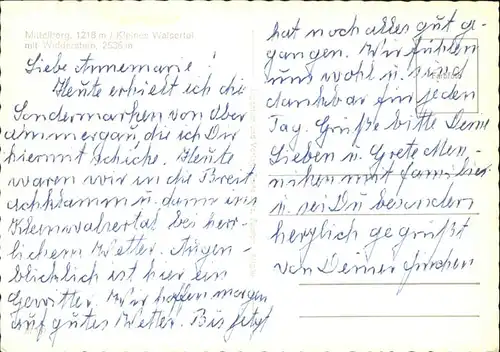 Mittelberg, 1218 m / Kleines Walsertal
mit Widderstein, 2536 m
Liebe Annemarie!
Heute erhielt ich die
Sondermarken von Ober
ammergau, die ich Dir
hiermit schicke. Heute
waren wir in die Breit
achklamm u. dann ins
Kleinwalsertal bei herr-
lichem Wetter. Augen-
blicklich ist hier ein
Gewitter. Wir hoffen morgen
auf gutes Wetter. Bis jetzt
hat noch alles gut ge-
gangen. Wir fühlen
uns wohl u. sind
dankbar für jeden
Tag. Grüße bitte Deine
Lieben u. Grete
mit Familie
u. sei Du besonders
herzlich gegrüßt
von Deiner